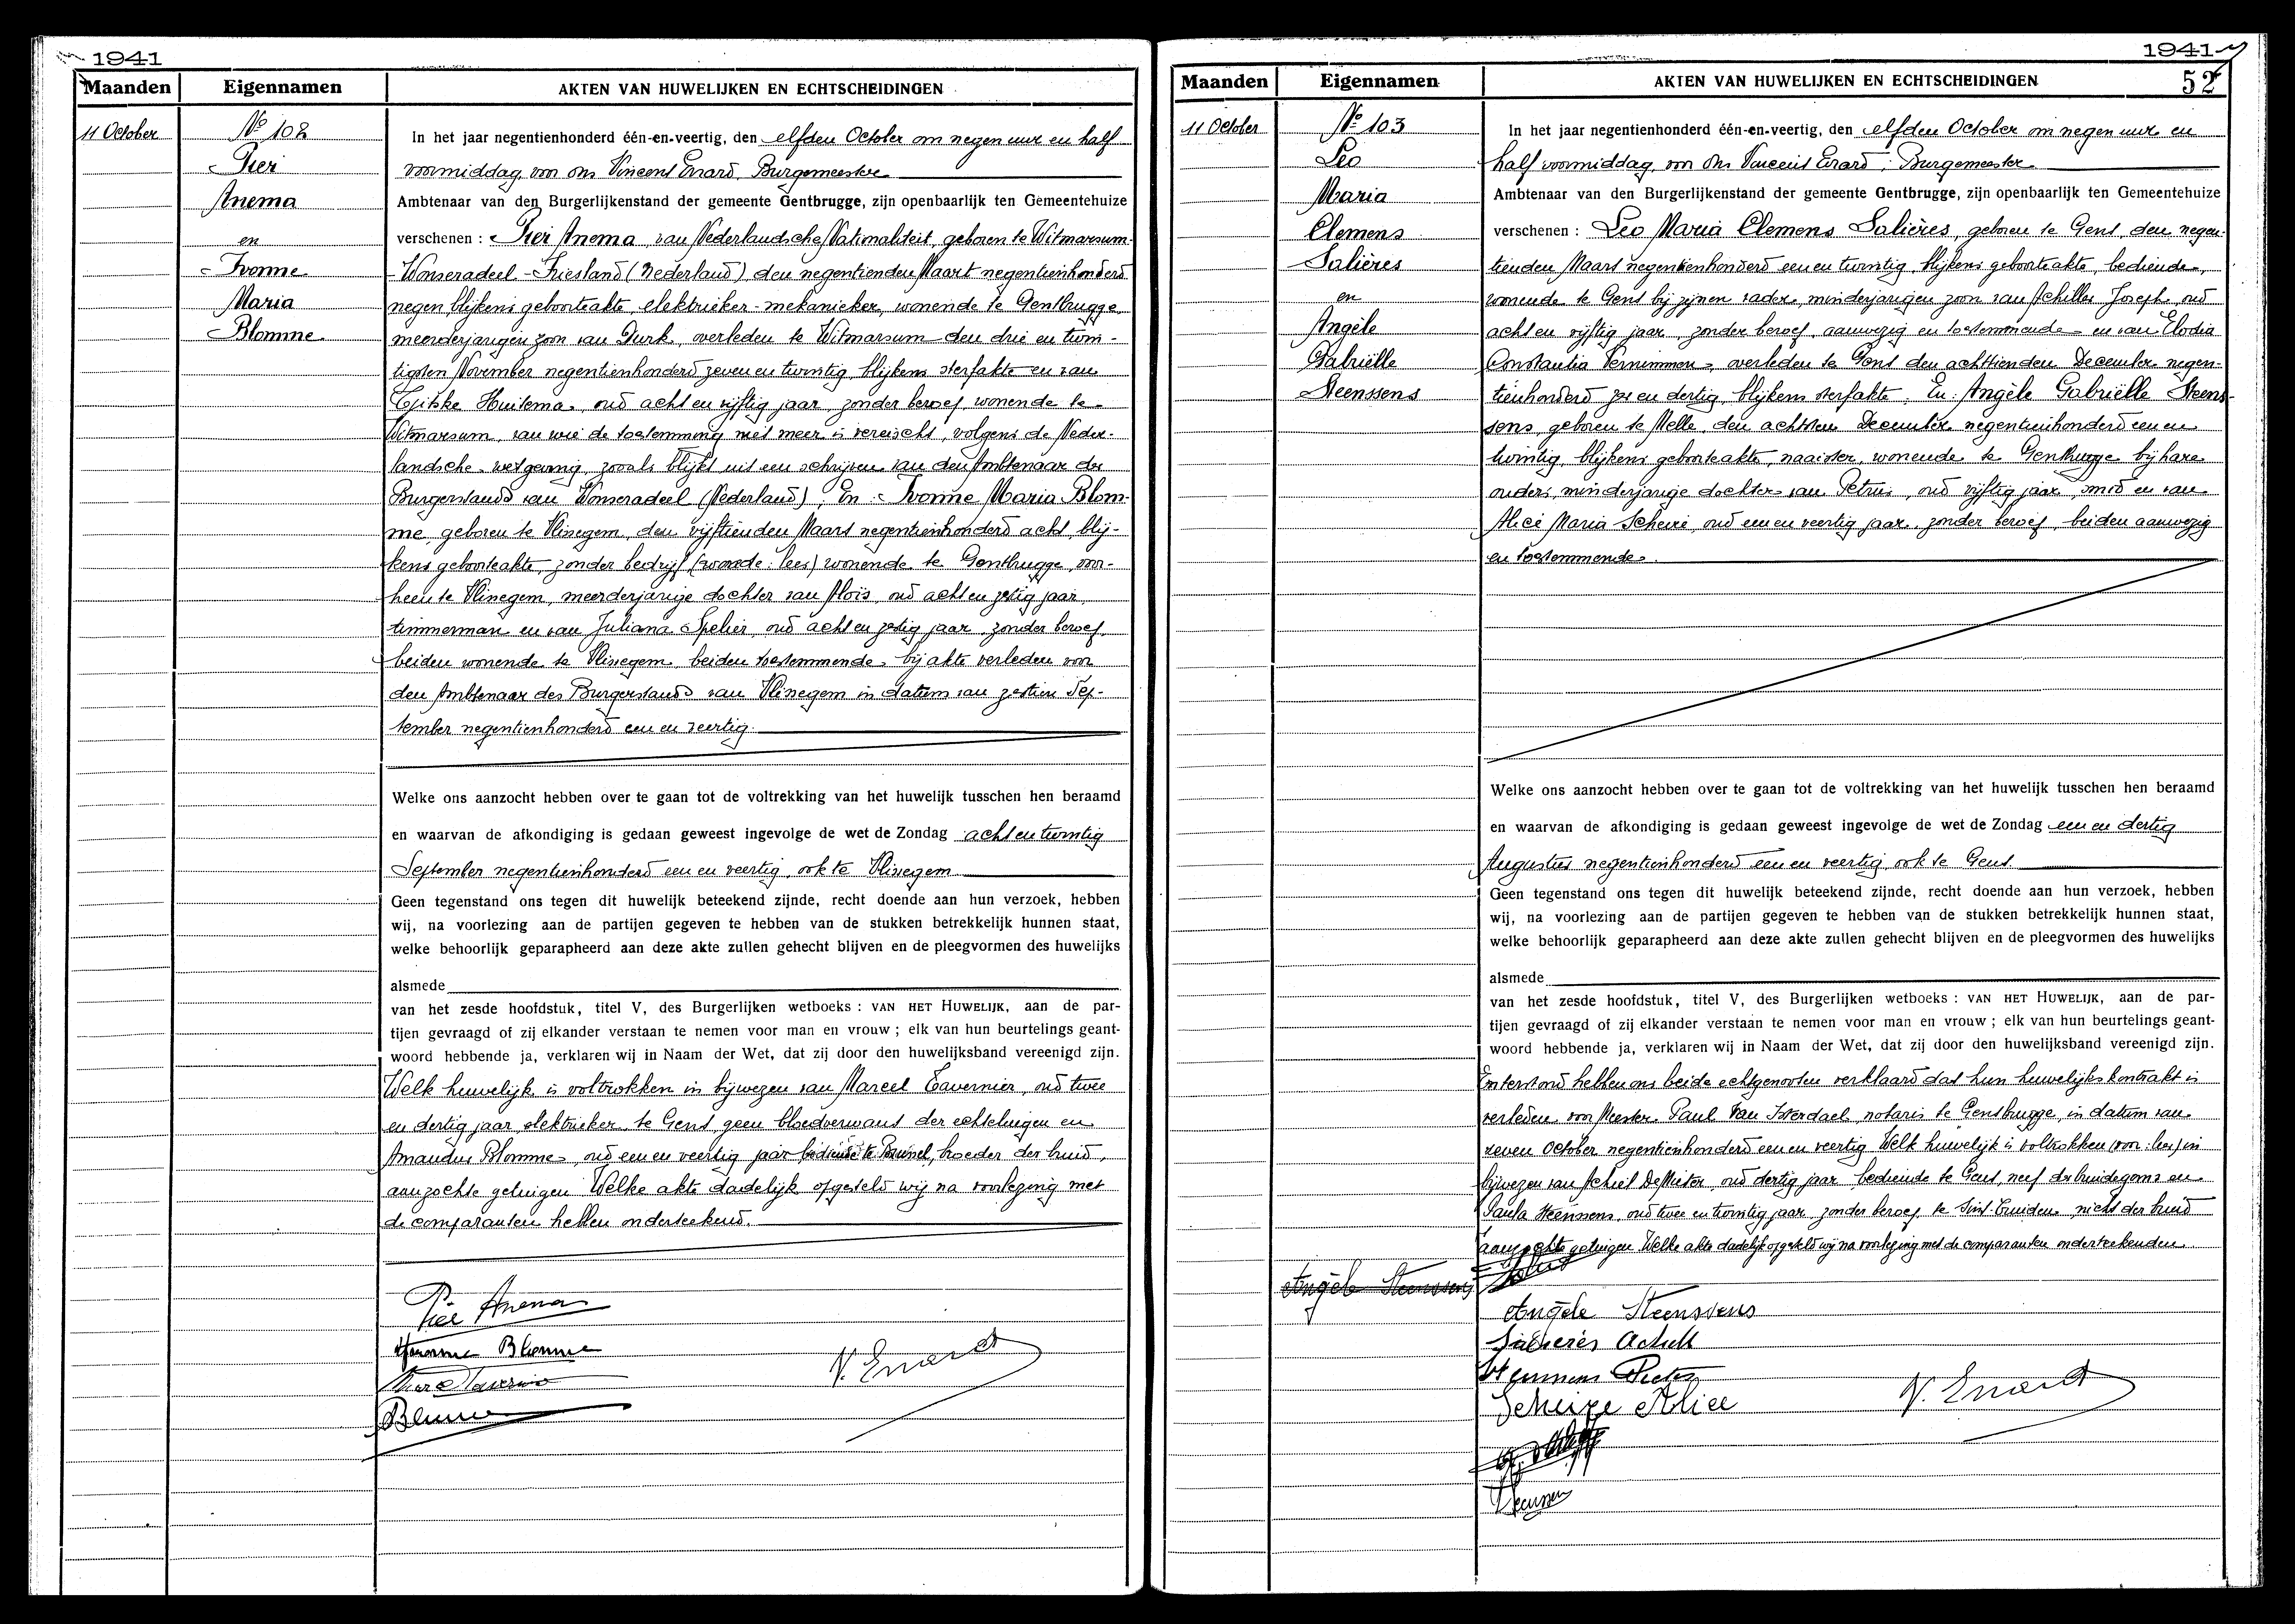 1941
Maanden Eigennamen AKTEN VAN HUWELIJKEN EN ECHTSCHEIDINGEN
11 October
No 102
Pier
Anema
en
Ivonne
Maria
Blomme
In het jaar negentienhonderd één-en-veertig, den elfden October om negen uur en half
voormiddag, voor ons Vincent Evrard, Burgemeester
Ambtenaar van den Burgerlijkenstand der gemeente Gentbrugge, zijn openbaarlijk ten Gemeentehuize
verschenen : Pier Anema, van Nederlandsche Nationaliteit, geboren te Witmarsum-
-Wonseradeel - Friesland (Nederland) den negentienden Maart negentienhonderd
negen, blijkens geboorteakte, elektrieker-mekanieker, wonende te Gentbrugge
meerderjarigen zoon van Durk, overleden te Witmarsum den drie en twin-
tigsten November negentienhonderd zeven en twintig, blijkens sterfakte en van
Tjitske Huitema, oud acht en vijftig jaar, zonder beroep, wonende te
Witmarsum, van wie de toestemming niet meer is vereischt, volgens de Neder-
landsche wetgeving, zooals blijkt uit een schrijven van den Ambtenaar des
Burgerstands van Wonseradeel (Nederland). En: Ivonne Maria Blom-
me, geboren te Vlissegem, den vijftienden Maart negentienhonderd acht, blij-
kens geboorteakte, zonder bedrijf (woonde: lees) wonende te Gentbrugge, voor-
heen te Vlissegem, meerderjarige dochter van Aloïs, oud acht en zestig jaar,
timmerman en van Juliana Spelier, oud acht en zestig jaar, zonder beroep,
beiden wonende te Vlissegem, beiden toestemmende bij akte verleden voor
den Ambtenaar des Burgerstands van Vlissegem in datum van zestien Sep-
tember negentienhonderd een en veertig.
Welke ons aanzocht hebben over te gaan tot de voltrekking van het huwelijk tusschen hen beraamd
en waarvan de afkondiging is gedaan geweest ingevolge de wet de Zondag acht en twintig
September negentienhonderd een en veertig, ook te Vlissegem
Geen tegenstand ons tegen dit huwelijk beteekend zijnde, recht doende aan hun verzoek, hebben
wij, na voorlezing aan de partijen gegeven te hebben van de stukken betrekkelijk hunnen staat,
welke behoorlijk geparapheerd aan deze akte zullen gehecht blijven en de pleegvormen des huwelijks
alsmede
van het zesde hoofdstuk, titel V, des Burgerlijken wetboeks : VAN HET HUWELIJK, aan de par-
tijen gevraagd of zij elkander verstaan te nemen voor man en vrouw ; elk van hun beurtelings geant-
woord hebbende ja, verklaren wij in Naam der Wet, dat zij door den huwelijksband vereenigd zijn.
Welk huwelijk is voltrokken in bijwezen van Marcel Tavernier, oud twee
en dertig jaar, elektrieker te Gent, geen bloedverwant der echtelingen en
Amandus Blomme, oud een en veertig jaar bediende te Brussel, broeder der bruid,
aanzochte getuigen. Welke akte dadelijk opgesteld wij na voorlezing met
de comparanten hebben onderteekend.
Pier Anema
Yvonne Blomme
Marcel Tavernier
Blomme
V. Evrard
1941
52
Maanden Eigennamen AKTEN VAN HUWELIJKEN EN ECHTSCHEIDINGEN
11 October
No 103
Leo
Maria
Clemens
Salières
en
Angèle
Gabriëlle
Steenssens
In het jaar negentienhonderd één-en-veertig, den elfden October om negen uur en
half voormiddag, voor ons Vincent Evrard, Burgemeester
Ambtenaar van den Burgerlijkenstand der gemeente Gentbrugge, zijn openbaarlijk ten Gemeentehuize
verschenen : Leo Maria Clemens Salières, geboren te Gent, den negen-
tienden Maart negentienhonderd een en twintig, blijkens geboorteakte, bediende,
wonende te Gent bij zijnen vader, minderjarigen zoon van Achilles Joseph, oud
acht en vijftig jaar, zonder beroep, aanwezig en toestemmende en van Elodia
Constantia Vernimmen, overleden te Gent den achttienden December negen-
tienhonderd zes en dertig, blijkens sterfakte. En: Angèle Gabriëlle Steens-
sens, geboren te Melle, den achtsten December negentienhonderd een en
twintig, blijkens geboorteakte, naaister, wonende te Gentbrugge bij hare
ouders, minderjarige dochter van Petrus, oud vijftig jaar, smid en van
Alice Maria Scheire, oud een en veertig jaar, zonder beroep, beiden aanwezig
en toestemmende.
Welke ons aanzocht hebben over te gaan tot de voltrekking van het huwelijk tusschen hen beraamd
en waarvan de afkondiging is gedaan geweest ingevolge de wet de Zondag een en dertig
Augustus negentienhonderd een en veertig, ook te Gent
Geen tegenstand ons tegen dit huwelijk beteekend zijnde, recht doende aan hun verzoek, hebben
wij, na voorlezing aan de partijen gegeven te hebben van de stukken betrekkelijk hunnen staat,
welke behoorlijk geparapheerd aan deze akte zullen gehecht blijven en de pleegvormen des huwelijks
alsmede
van het zesde hoofdstuk, titel V, des Burgerlijken wetboeks : VAN HET HUWELIJK, aan de par-
tijen gevraagd of zij elkander verstaan te nemen voor man en vrouw ; elk van hun beurtelings geant-
woord hebbende ja, verklaren wij in Naam der Wet, dat zij door den huwelijksband vereenigd zijn.
Enterstond hebben ons beide echtgenooten verklaard dat hun huwelijkskontrakt is
verleden voor Meester Paul Van Iseterdael, notaris te Gentbrugge, in datum van
zeven October negentienhonderd een en veertig. Welk huwelijk is voltrokken (voor: lees) in
bijwezen van Achiel De Meter, oud dertig jaar, bediende te Gent, neef des bruidegoms en
Paula Steenssens, oud twee en twintig jaar, zonder beroep, te Sint-Truiden, nicht der bruid
aanzochte getuigen. Welke akte dadelijk opgesteld wij na voorlezing met de comparanten onderteekenden.
Angèle Steenssens
Angèle Steenssens
Salières Achill
Steenssens Pieter
Scheire Alice
V. Evrard
Steenssen